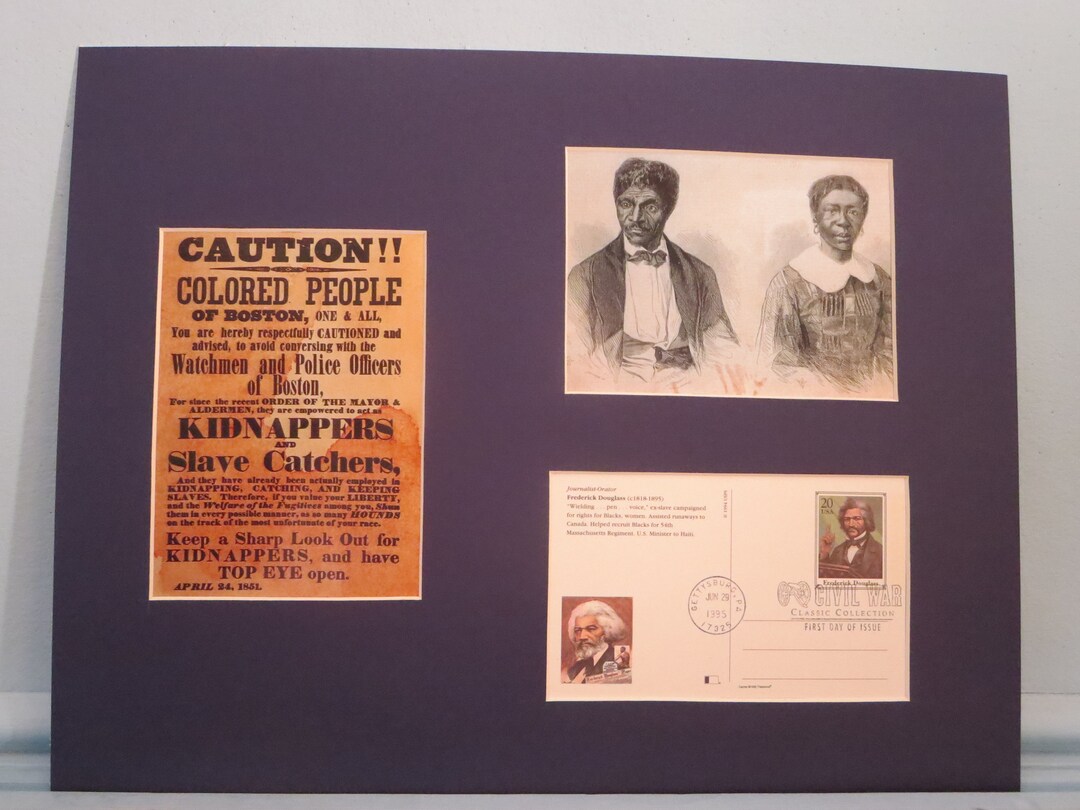 CAUTION!!
COLORED PEOPLE
OF BOSTON, ONE & ALL,
You are hereby respectfully CAUTIONED and
advised, to avoid conversing with the
Watchmen and Police Officers
of Boston,
For since the recent ORDER OF THE MAYOR &
ALDERMEN, they are empowered to act as
KIDNAPPERS
AND
Slave Catchers,
And they have already been actually employed in
KIDNAPPING, CATCHING, AND KEEPING
SLAVES. Therefore, if you value your LIBERTY,
and the Welfare of the Fugitives among you, Shun
them in every possible manner, as so many HOUNDS
on the track of the most unfortunate of your race.
Keep a Sharp Look Out for
KIDNAPPERS, and have
TOP EYE open.
APRIL 24, 1851.
Journalist-Orator
Frederick Douglass (c1818-1895)
"Wielding . . . pen . . . voice," ex-slave campaigned
for rights for Blacks, women. Assisted runaways to
Canada. Helped recruit Blacks for 54th
Massachusetts Regiment. U.S. Minister to Haiti.
20
USA
Frederick Douglass
GETTYSBURG, PA
JUN 29
1995
17325
CIVIL WAR
CLASSIC COLLECTION
FIRST DAY OF ISSUE